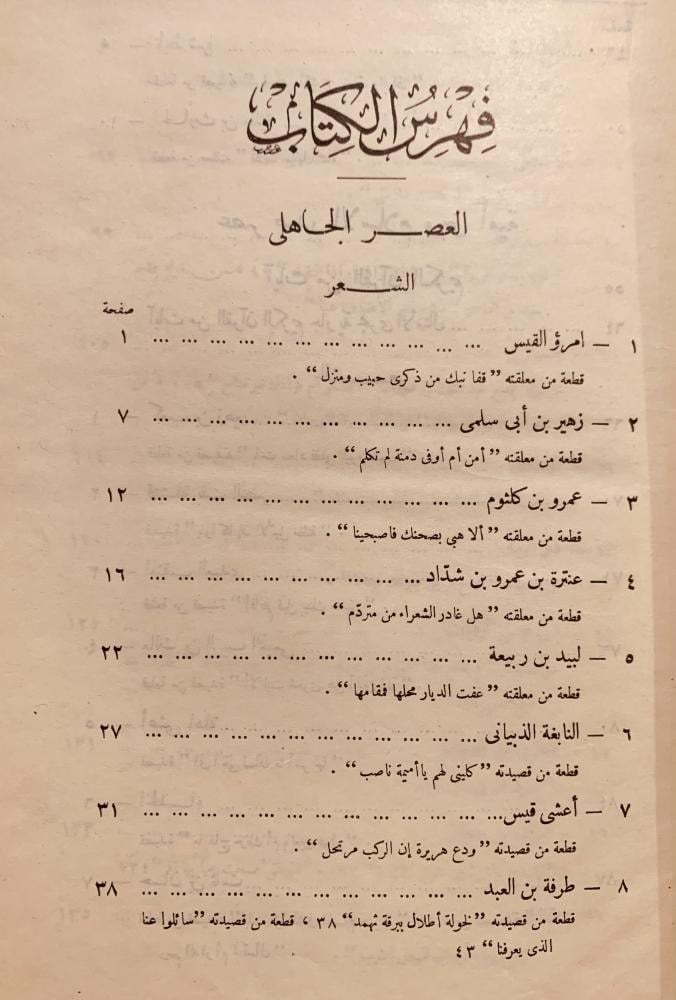 فِهْرِسُ الكِتَابُ
العصر الجاهلى
الشعر
صفحة
١ — امرؤ القيس ... ... ... ... ... ... ... ... ... ... ... ... ١
قطعة من معلقته ” قفا نبك من ذكرى حبيب ومنزل “ .
٢ — زهير بن أبى سلمى ... ... ... ... ... ... ... ... ... ... ... ٧
قطعة من معلقته ” أمن أم أوفى دمنة لم تكلم “ .
٣ — عمرو بن كلثوم ... ... ... ... ... ... ... ... ... ... ... ... ١٢
قطعة من معلقته ” ألا هبي بصحنك فاصبحينا “ .
٤ — عنترة بن عمرو بن شدّاد ... ... ... ... ... ... ... ... ... ... ١٦
قطعة من معلقته ” هل غادر الشعراء من متردّم “ .
٥ — لبيد بن ربيعة ... ... ... ... ... ... ... ... ... ... ... ... ٢٢
قطعة من معلقته ” عفت الديار محلها فمقامها “ .
٦ — النابغة الذبيانى ... ... ... ... ... ... ... ... ... ... ... ... ٢٧
قطعة من قصيدته ” كلينى لهم يا أميمة ناصب “ .
٧ — أعشى قيس ... ... ... ... ... ... ... ... ... ... ... ... ... ٣١
قطعة من قصيدته ” ودع هريرة إن الركب مرتحل “ .
٨ — طرفة بن العبد ... ... ... ... ... ... ... ... ... ... ... ... ٣٨
قطعة من قصيدته ” لخولة أطلال ببرقة ثهمد “ ٣٨ ، قطعة من قصيدته ” سائلوا عنا
الذى يعرفنا “ ٤٣